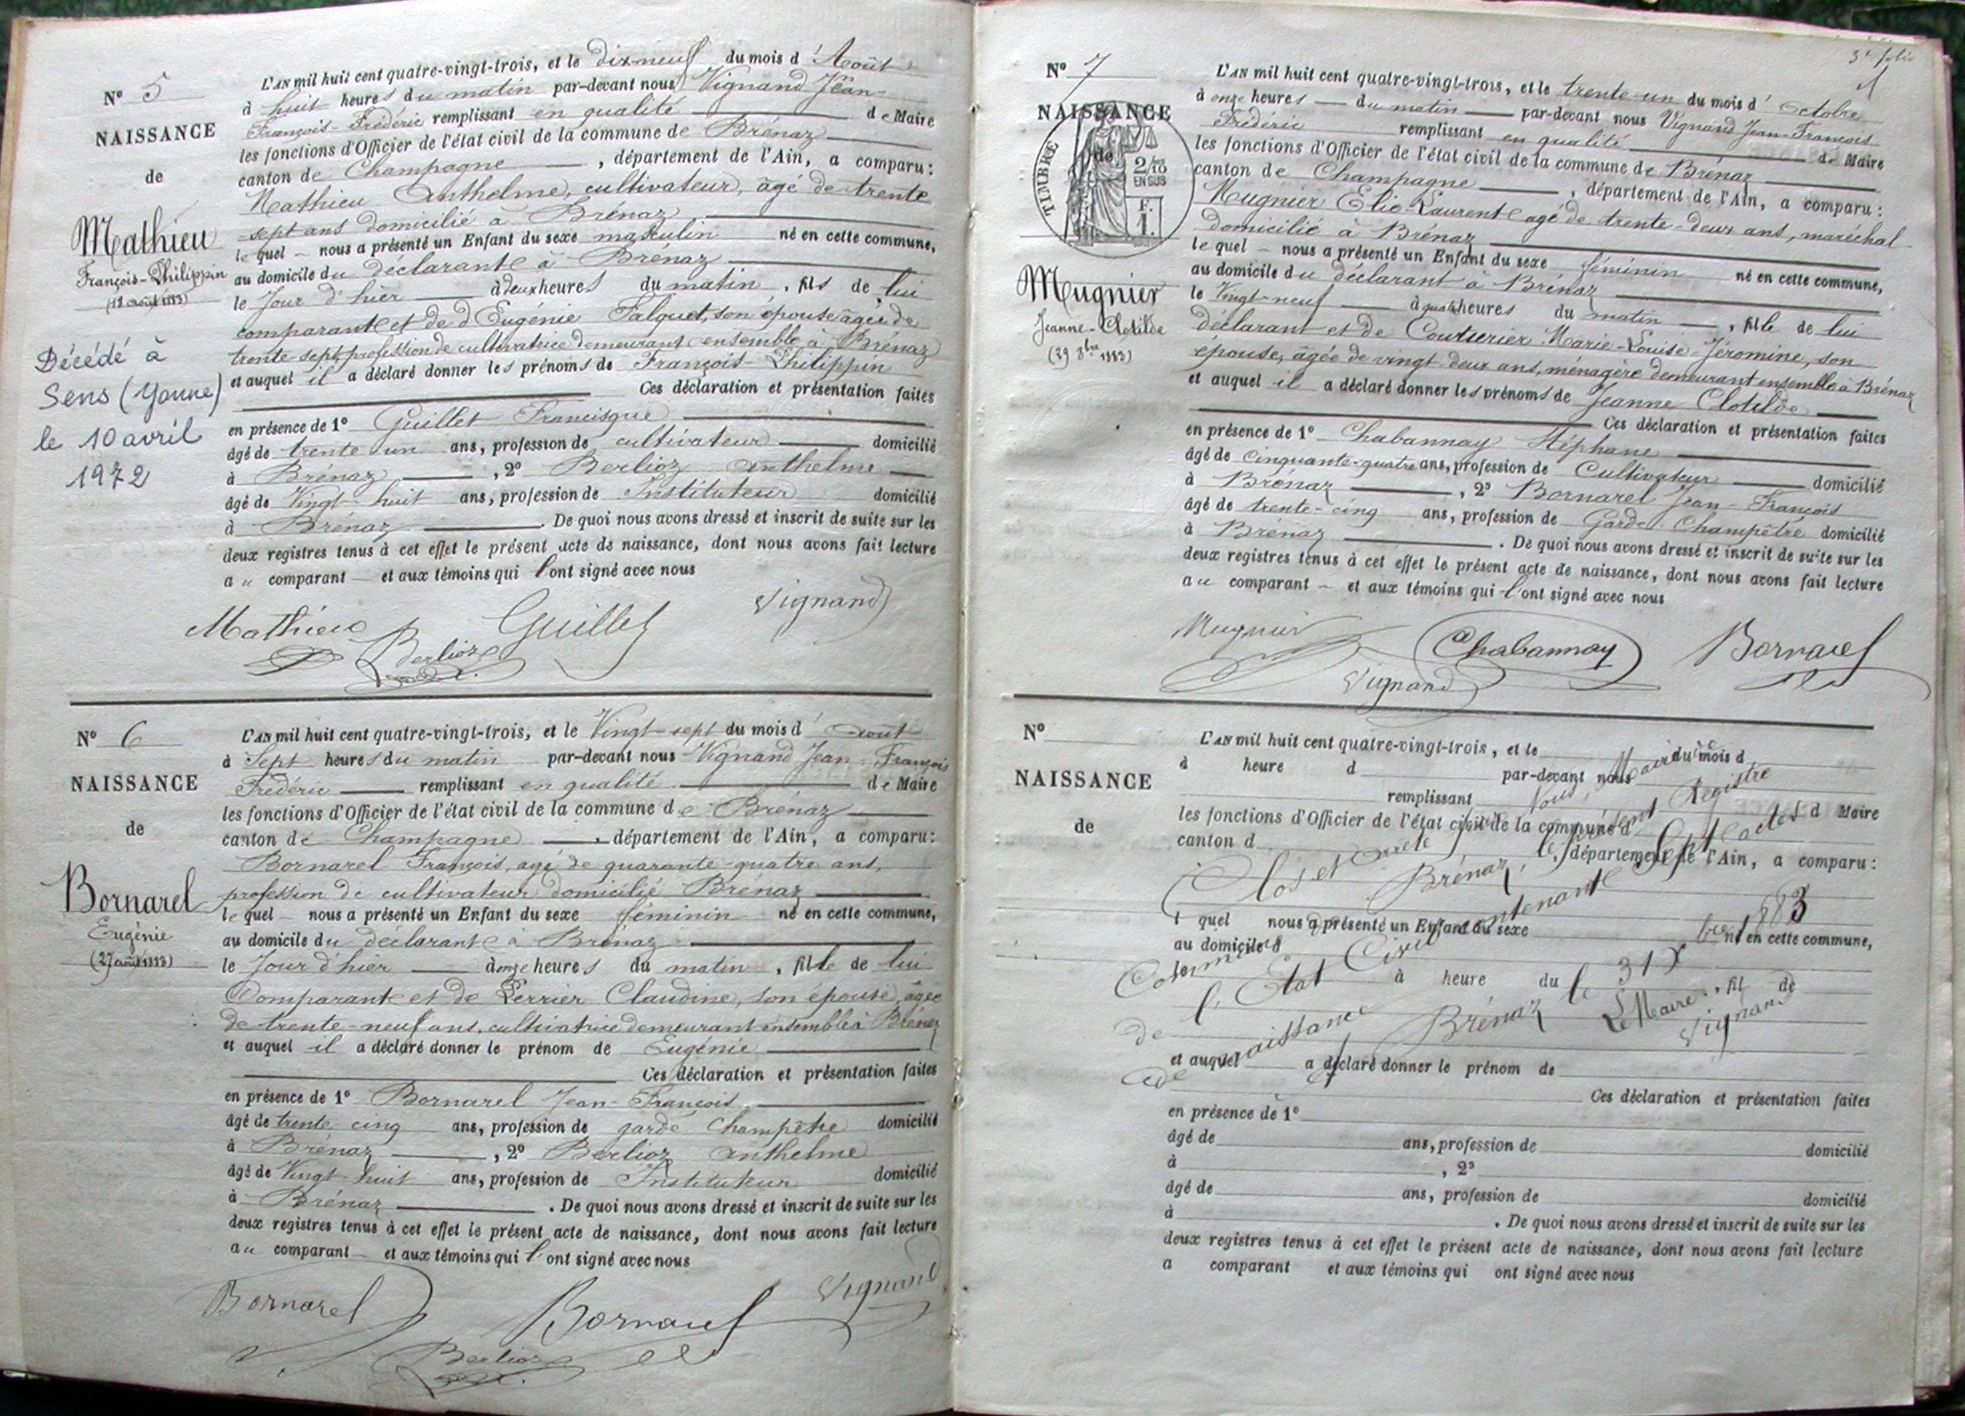 N° 5
NAISSANCE
de
Mathieu
François-Philippin
(18 août 1883)
Décédé à
Sens (Yonne)
le 10 avril
1972
L'AN mil huit cent quatre-vingt-trois, et le dix-neuf du mois d'Août
à huit heures du matin par-devant nous Vignand Jean-
François-Frédéric remplissant en qualité de Maire
les fonctions d'Officier de l'état civil de la commune de Brénaz
canton de Champagne, département de l'Ain, a comparu:
Mathieu Anthelme, cultivateur, âgé de trente
sept ans domicilié à Brénaz
le quel nous a présenté un Enfant du sexe masculin né en cette commune,
au domicile du déclarant à Brénaz
le Jour d'hier à deux heures du matin, fils de lui
comparant et de d Eugénie Falquet, son épouse âgée de
trente sept profession de cultivatrice demeurant ensemble à Brénaz
et auquel il a déclaré donner les prénoms de François-Philippin
Ces déclaration et présentation faites
en présence de 1° Guillet Francisque
âgé de trente un ans, profession de cultivateur domicilié
à Brénaz, 2° Berlioz Anthelme
âgé de Vingt huit ans, profession de Instituteur domicilié
à Brénaz. De quoi nous avons dressé et inscrit de suite sur les
deux registres tenus à cet effet le présent acte de naissance, dont nous avons fait lecture
au comparant et aux témoins qui l'ont signé avec nous
Mathieu Berlioz Guillet Vignand
N° 6
NAISSANCE
de
Bornarel
Eugénie
(27 août 1883)
L'AN mil huit cent quatre-vingt-trois, et le Vingt-sept du mois d'août
à Sept heures du matin par-devant nous Vignand Jean-François
Frédéric remplissant en qualité de Maire
les fonctions d'Officier de l'état civil de la commune de Brénaz
canton de Champagne, département de l'Ain, a comparu:
Bornarel François, agé de quarante-quatre ans,
profession de cultivateur domicilié Brénaz
le quel nous a présenté un Enfant du sexe féminin né en cette commune,
au domicile du déclarant à Brénaz
le Jour d'hier à onze heures du matin, fille de lui
Comparant et de Perrier Claudine, son épouse, âgée
de trente-neuf ans, cultivatrice demeurant ensemble à Brénaz
et auquel il a déclaré donner le prénom de Eugénie
Ces déclaration et présentation faites
en présence de 1° Bornarel Jean-François
âgé de trente cinq ans, profession de garde Champêtre domicilié
à Brénaz, 2° Berlioz Anthelme
âgé de Vingt huit ans, profession de Instituteur domicilié
à Brénaz. De quoi nous avons dressé et inscrit de suite sur les
deux registres tenus à cet effet le présent acte de naissance, dont nous avons fait lecture
au comparant et aux témoins qui l'ont signé avec nous
Bornarel Bornarel Vignand
Berlioz
3e folio
N° 7
NAISSANCE
de
TIMBRE
2/10
EN SUS
F.
1.
Mugnier
Jeanne-Clotilde
(29 8bre 1883)
L'AN mil huit cent quatre-vingt-trois, et le trente-un du mois d'Octobre
à onze heures du matin par-devant nous Vignand Jean-François
Frédéric remplissant en qualité de Maire
les fonctions d'Officier de l'état civil de la commune de Brénaz
canton de Champagne, département de l'Ain, a comparu:
Mugnier Elie-Laurent agé de trente-deux ans, maréchal
domicilié à Brénaz
le quel nous a présenté un Enfant du sexe féminin né en cette commune,
au domicile du déclarant à Brénaz
le Vingt-neuf à quatre heures du matin, fille de lui
déclarant et de Couturier Marie-Louise Jéromine, son
épouse, âgée de vingt deux ans, ménagère demeurant ensemble à Brénaz
et auquel il a déclaré donner les prénoms de Jeanne Clotilde
Ces déclaration et présentation faites
en présence de 1° Chabannay Stéphane
âgé de cinquante-quatre ans, profession de Cultivateur domicilié
à Brénaz, 2° Bornarel Jean-François
âgé de trente-cinq ans, profession de Garde-Champêtre domicilié
à Brénaz. De quoi nous avons dressé et inscrit de suite sur les
deux registres tenus à cet effet le présent acte de naissance, dont nous avons fait lecture
au comparant et aux témoins qui l'ont signé avec nous
Mugnier Chabannay Bornarel
Vignand
N°
NAISSANCE
de
L'AN mil huit cent quatre-vingt-trois, et le du mois d
à heure d par-devant nous
remplissant d Maire
les fonctions d'Officier de l'état civil de la commune d
canton d, département de l'Ain, a comparu:
l quel nous a présenté un Enfant du sexe né en cette commune,
au domicile d
le à heure du, fil de
et auquel a déclaré donner le prénom de
Ces déclaration et présentation faites
en présence de 1°
âgé de ans, profession de domicilié
à, 2°
âgé de ans, profession de domicilié
à. De quoi nous avons dressé et inscrit de suite sur les
deux registres tenus à cet effet le présent acte de naissance, dont nous avons fait lecture
a comparant et aux témoins qui ont signé avec nous
Clos et arrêté par Nous, Maire de
Brénaz, le présent Registre
contenant Sept actes
de l'Etat Civil
naissance
Brénaz le 31 Xbre 1883
Le Maire
Vignand